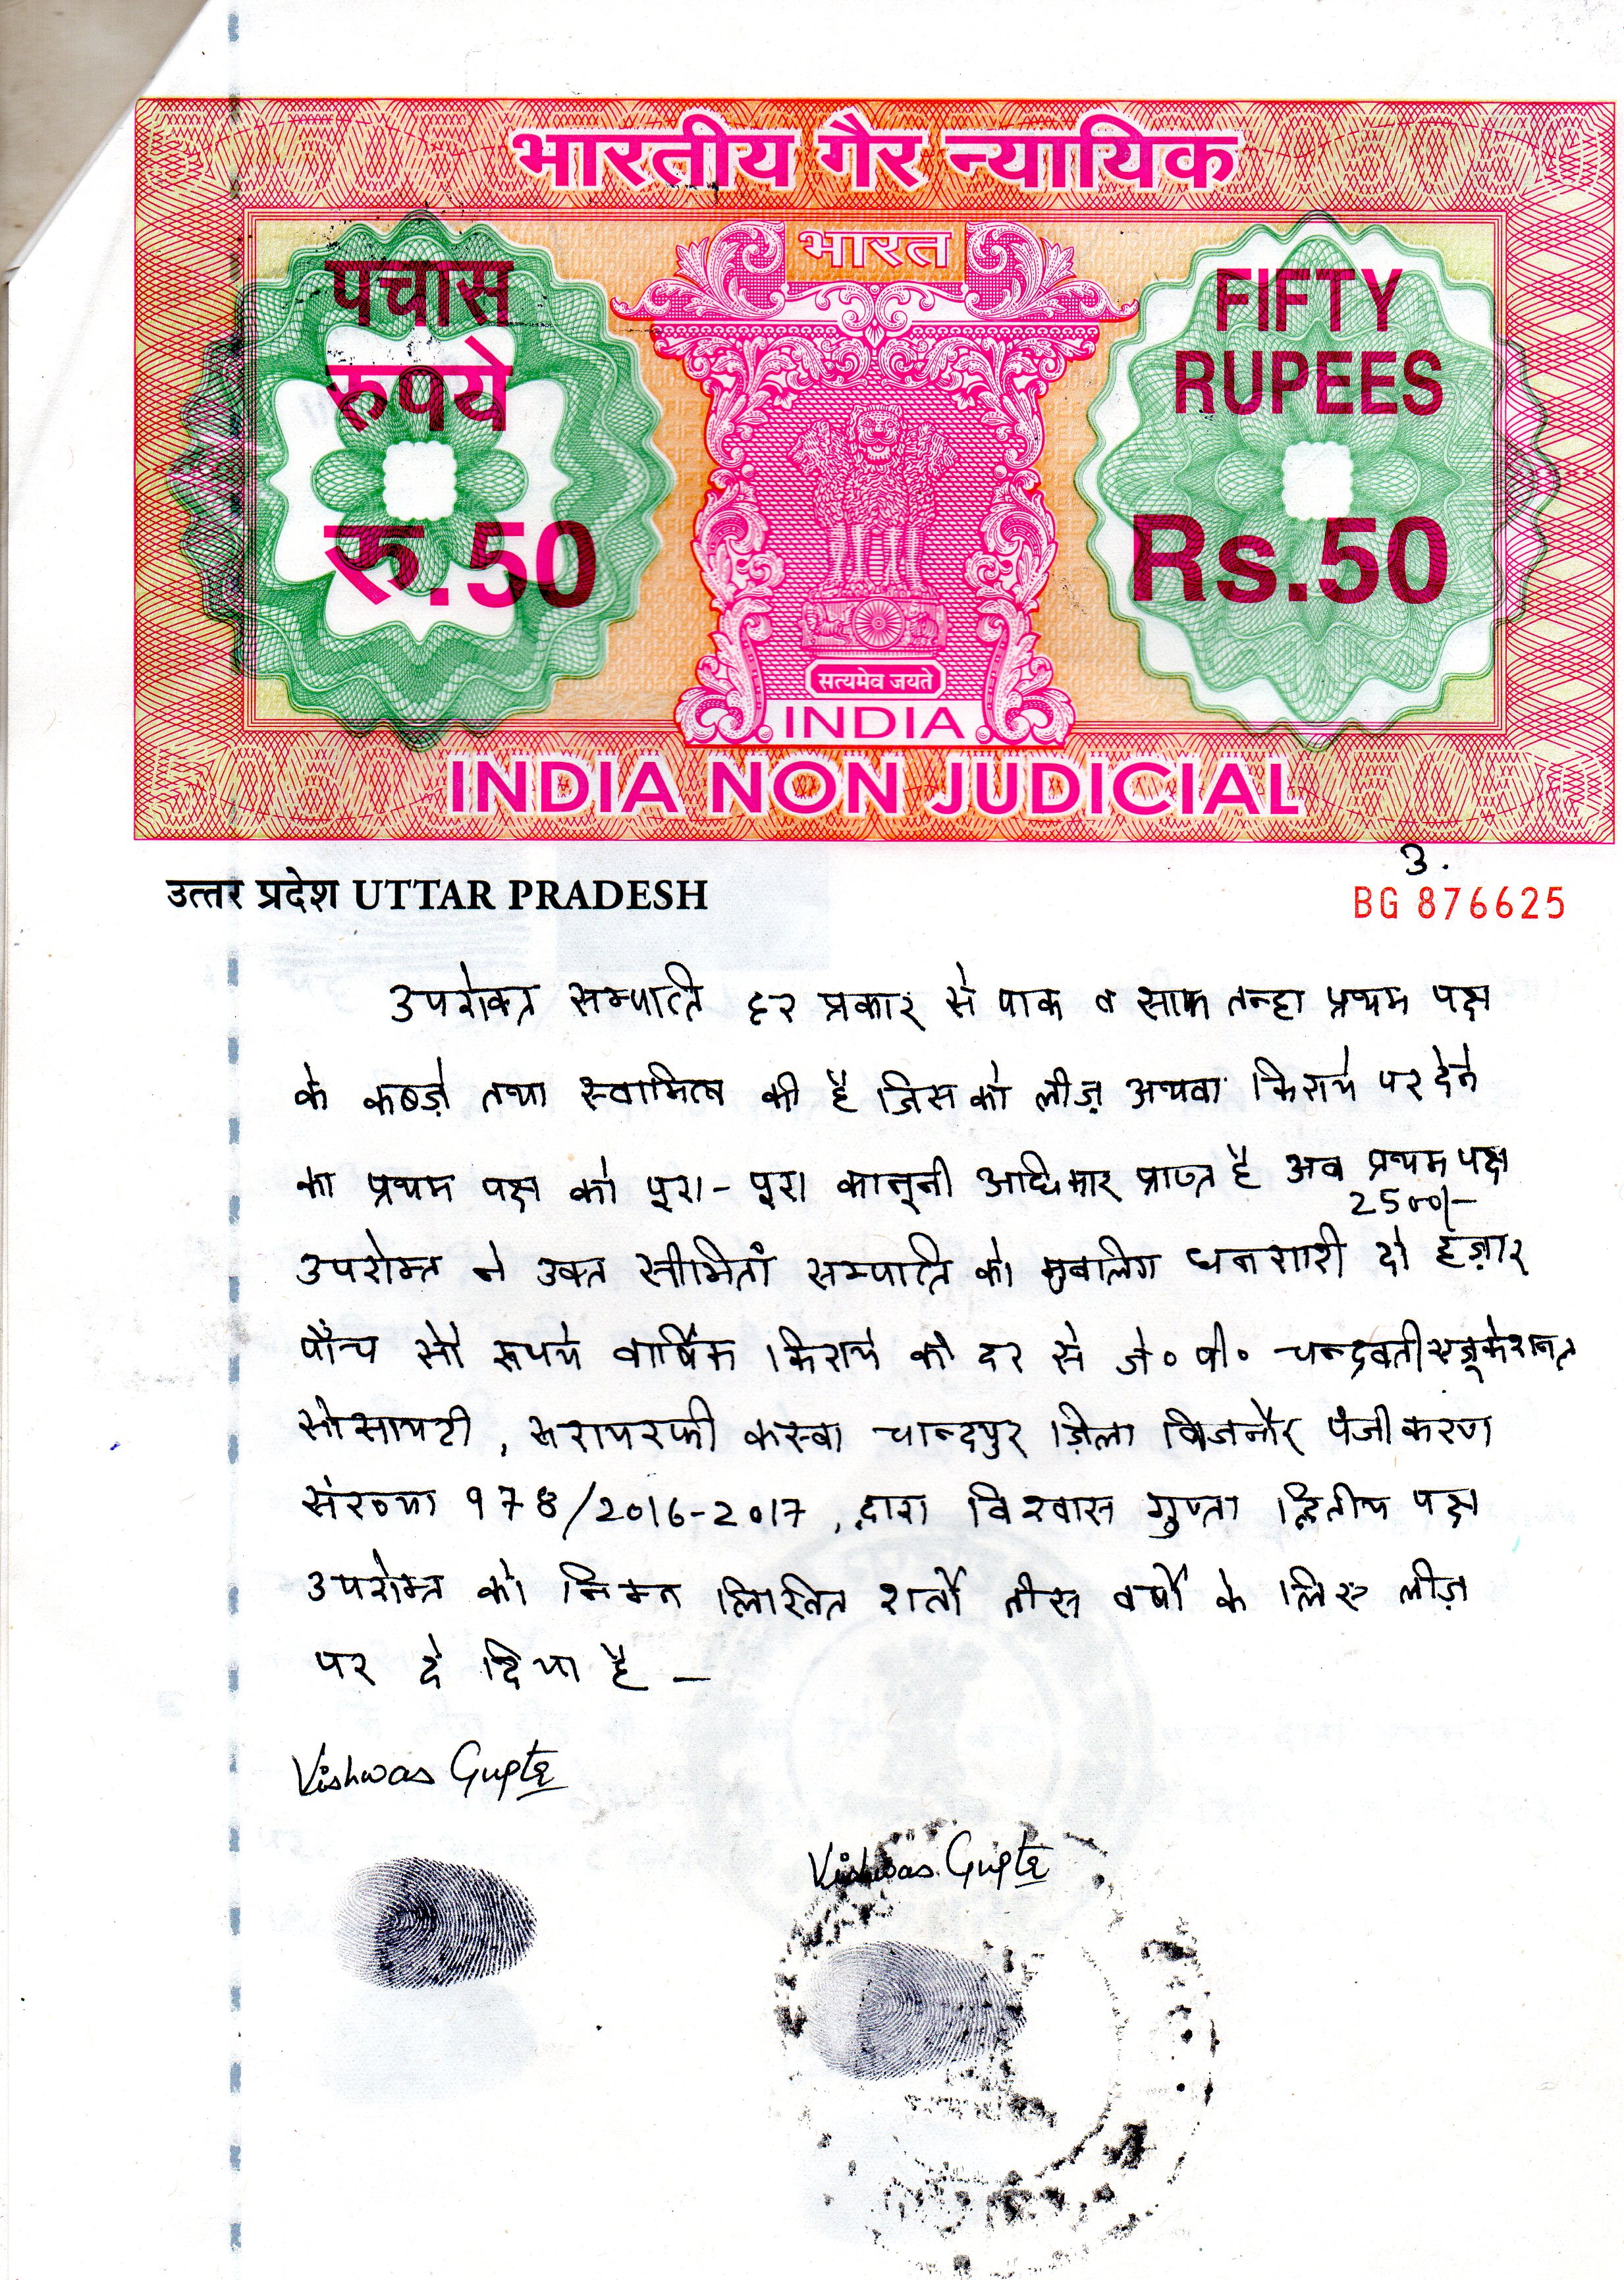 भारतीय गैर न्यायिक
भारत
पचास
रुपये
रु.50
FIFTY
RUPEES
Rs.50
सत्यमेव जयते
INDIA
INDIA NON JUDICIAL
3.
उत्तर प्रदेश UTTAR PRADESH
BG 876625
उपरोक्त सम्पात्ति हर प्रकार से पाक व साफ तन्हा प्रथम पक्ष
के कब्ज़े तथा स्वामित्व की है जिसको लीज़ अथवा किराये पर देने
का प्रथम पक्ष को पूरा-पूरा कानूनी अधिकार प्राप्त है अब प्रथम पक्ष
2500/-
उपरोक्त ने उक्त सम्पात्ति को मुबलिग धनराशी दो हज़ार
पाँच सौ रूपये वार्षिक किराये की दर से जे० पी० चन्द्रवती एजूकेशनल
सोसायटी, सरायरफी कस्बा चान्दपुर ज़िला बिजनौर पंजीकरण
संख्या 978/2016-2017, द्वारा विश्वास गुप्ता द्वितीय पक्ष
उपरोक्त को निम्न लिखित शर्तो तीस वर्षो के लिए लीज़
पर दे दिया है —
Vishwas Gupta
Vishwas Gupta